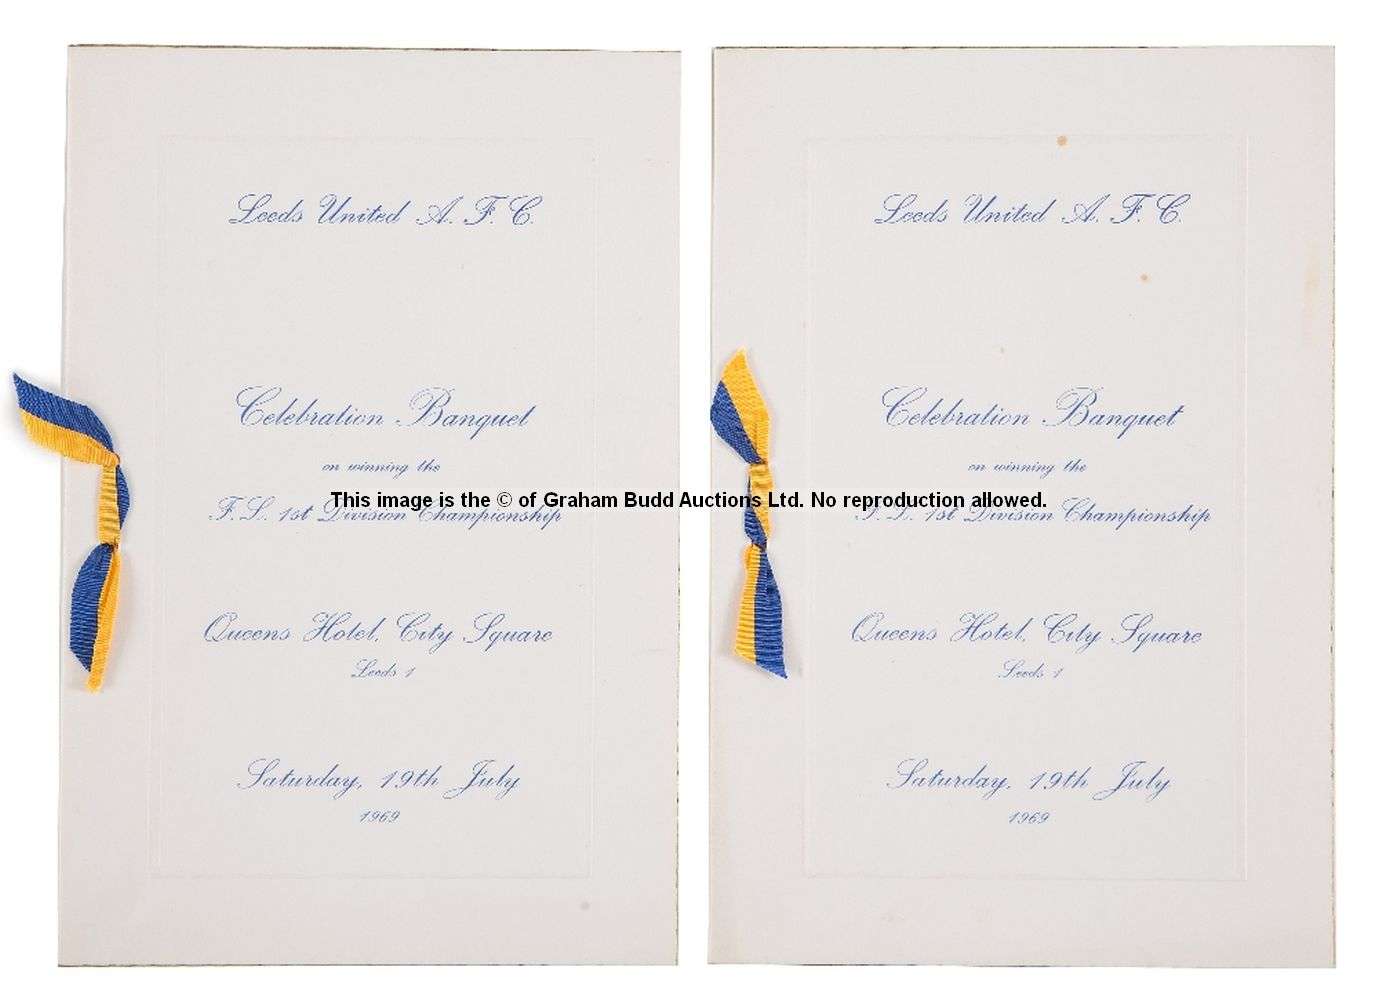 Leeds United A.F.C.
Celebration Banquet
on winning the
F.L. 1st Division Championship
Queens Hotel, City Square
Leeds 1
Saturday, 19th July
1969
Leeds United A.F.C.
Celebration Banquet
on winning the
F.L. 1st Division Championship
Queens Hotel, City Square
Leeds 1
Saturday, 19th July
1969
This image is the © of Graham Budd Auctions Ltd. No reproduction allowed.